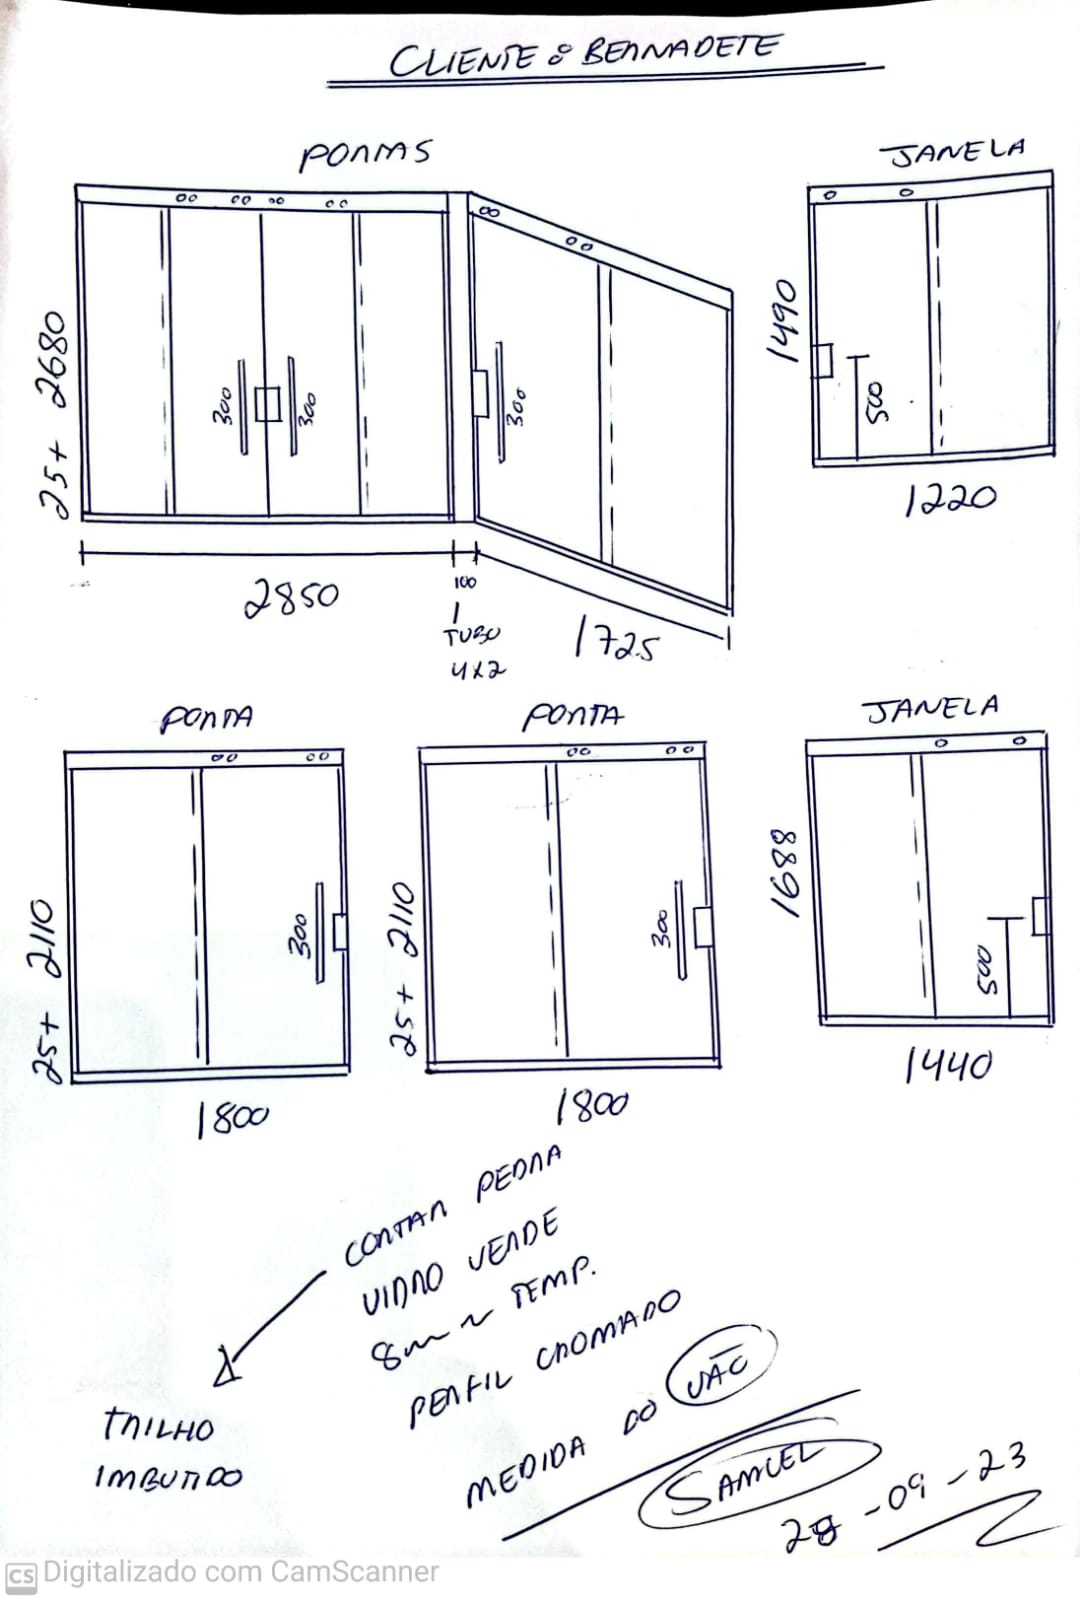 CLIENTE : BERNADETE
PORTAS
JANELA
25+ 2680
300
300
300
1490
500
1220
2850
100
TUBO
4X2
1725
PORTA
PORTA
JANELA
25+ 2110
300
25+ 2110
300
1688
500
1800
1800
1440
CORTAR PEDRA
VIDRO VERDE
8mm TEMP.
PERFIL CROMADO
MEDIDA DO VÃO
TRILHO
IMBUTIDO
SAMUEL
28-09-23
CS Digitalizado com CamScanner